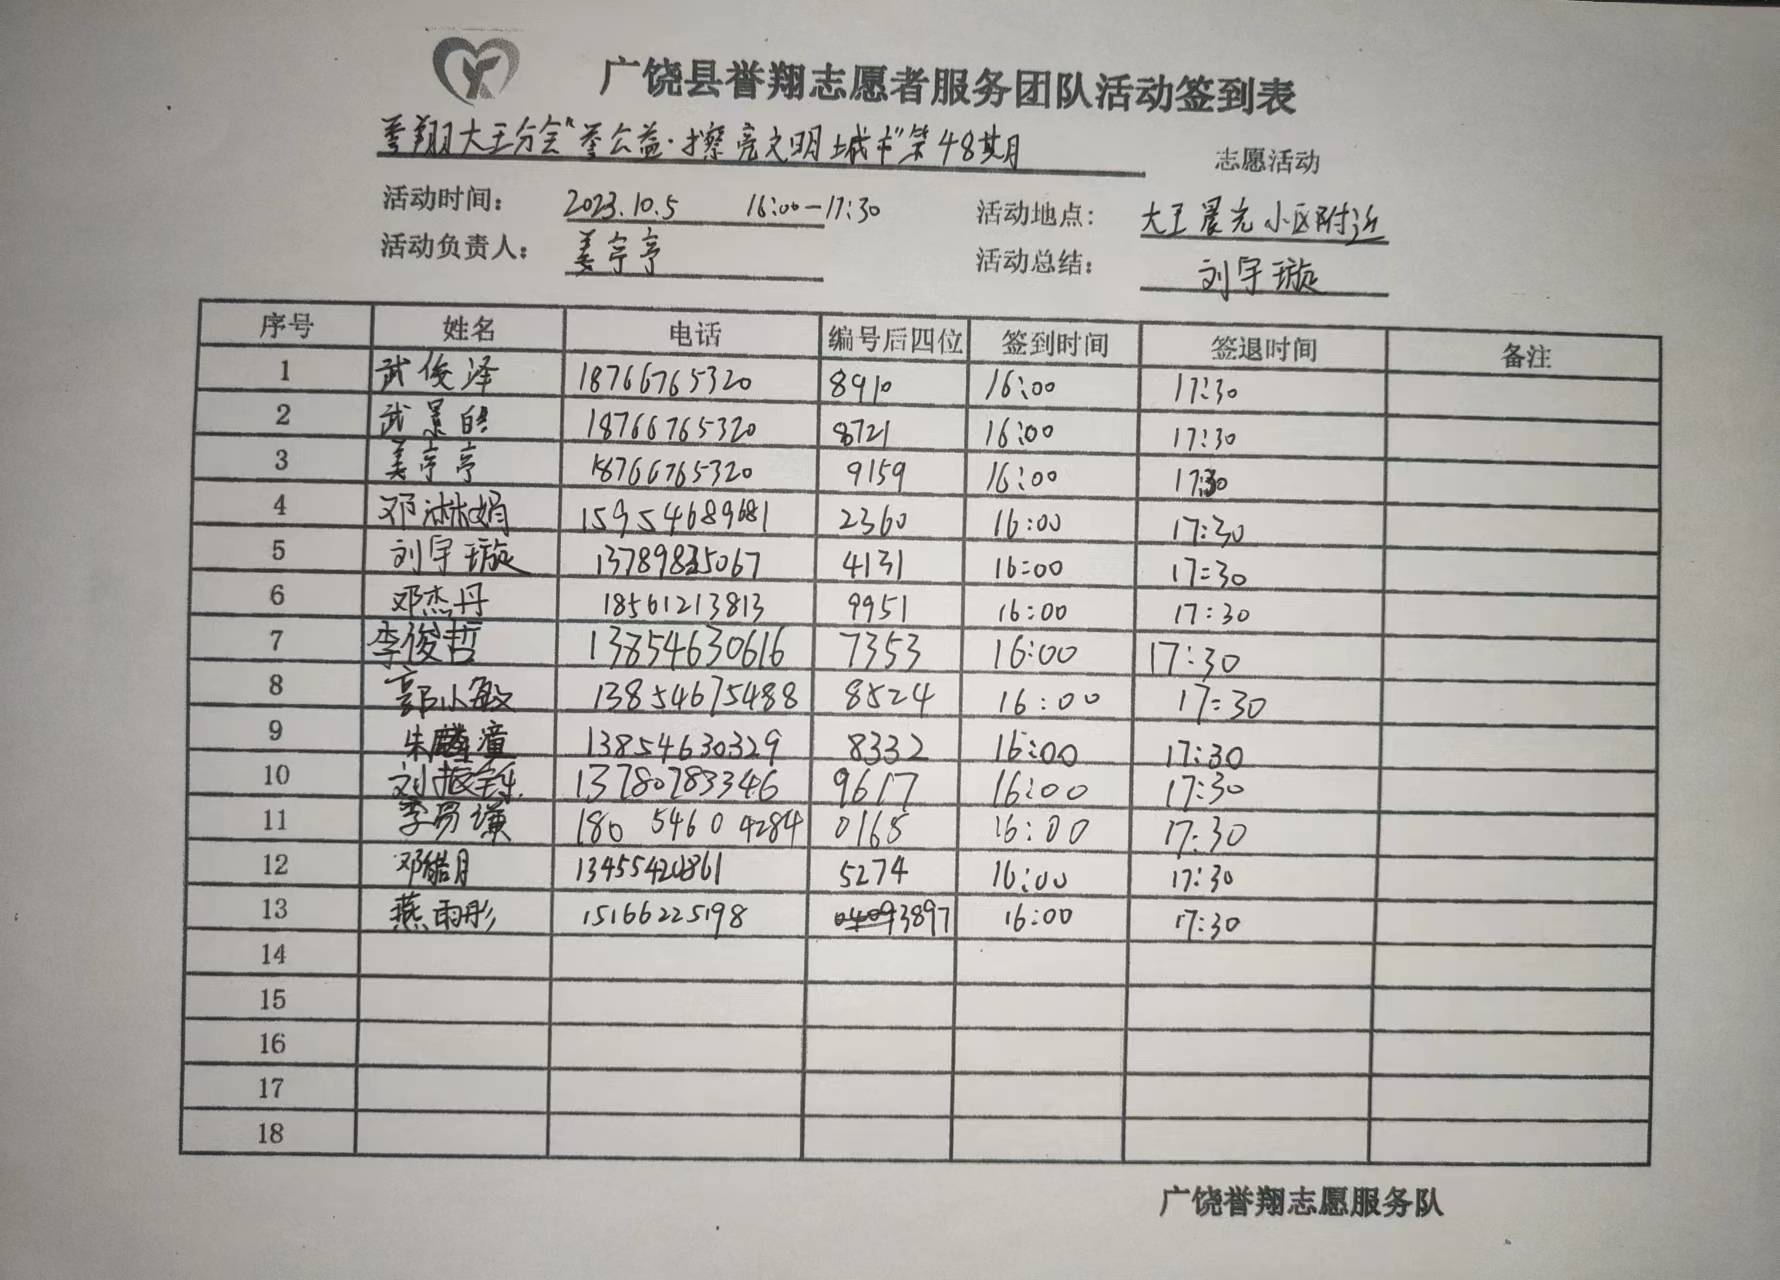 广饶县誉翔志愿者服务团队活动签到表
誉翔大王分会“誉公益·擦亮文明城市”第48期 志愿活动
活动时间： 2023.10.5 16:00-17:30 活动地点： 大王晨光小区附近
活动负责人： 姜宁宁 活动总结： 刘宇璇
序号 姓名 电话 编号后四位 签到时间 签退时间 备注
1 武俊泽 18766765320 8910 16:00 17:30
2 武景皓 18766765320 8721 16:00 17:30
3 姜宁宁 18766765320 9159 16:00 17:30
4 邓淋娟 15954689681 2360 16:00 17:30
5 刘宇璇 13789835067 4131 16:00 17:30
6 邓杰丹 18561213813 9951 16:00 17:30
7 李俊哲 13854630616 7353 16:00 17:30
8 郭小敏 13854675488 8524 16:00 17:30
9 朱麟 13854630329 8332 16:00 17:30
10 刘振乐 13780783346 9617 16:00 17:30
11 李易谦 180 5460 4284 0165 16:00 17:30
12 邓皓月 13455420861 5274 16:00 17:30
13 燕雨彤 15166225198 3897 16:00 17:30
14
15
16
17
18
广饶誉翔志愿服务队